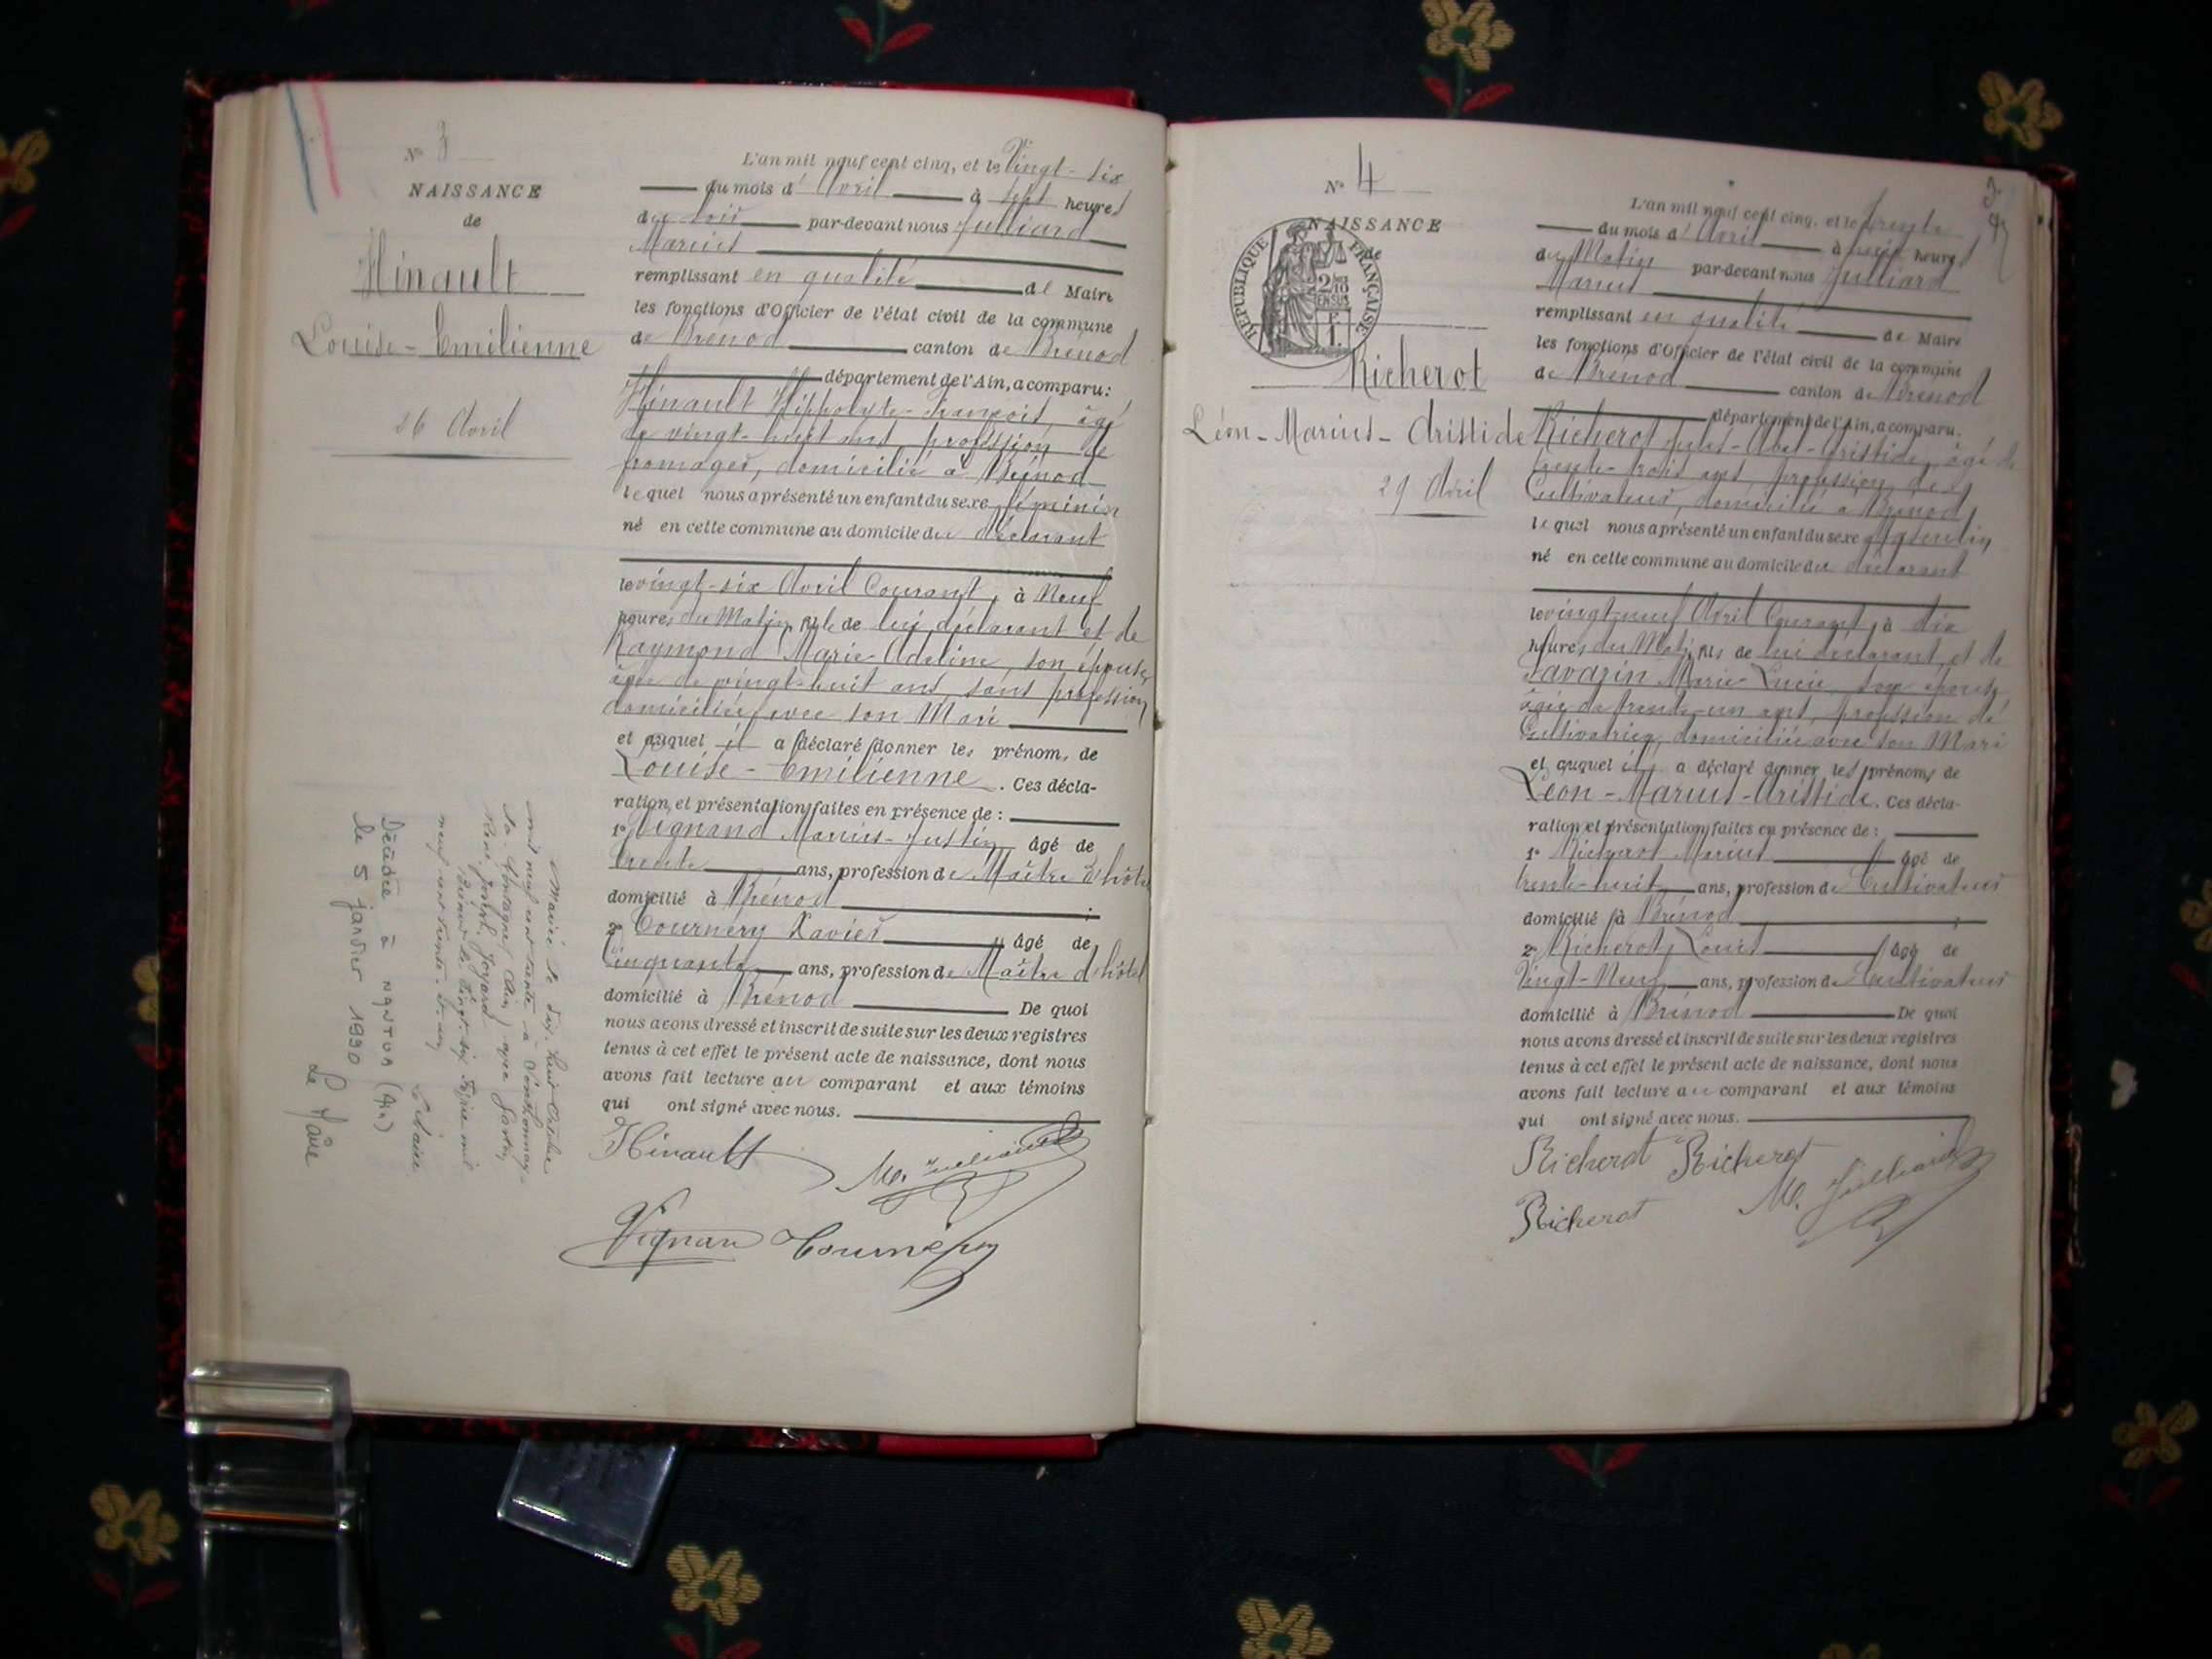 N° 3
NAISSANCE
de
Hinault
Louise - Emilienne
26 Avril
Marié le dix-huit Octobre
mil neuf cent trente à Songthonnay-
la-Montagne (Ain) avec
René Joseph Joyard
Brénod le vingt-six mil
neuf cent trente et un
Le Maire
Décédée à NANTUA (Ain)
le 5 janvier 1990
Le Maire
L'an mil neuf cent cinq, et le Vingt-six
du mois d'Avril à sept heures
du soir par-devant nous Julliard
Marius
remplissant en qualité de Maire
les fonctions d'Officier de l'état civil de la commune
de Brénod canton de Brénod
département de l'Ain, a comparu:
Hinault Hippolyte-François, âgé
de vingt-huit ans, profession de
fromager, domicilié à Brénod
lequel nous a présenté un enfant du sexe féminin
né en cette commune au domicile du déclarant
le vingt-six Avril Courant, à Neuf
heures du Matin, de lui déclarant et de
Raymond Marie-Adeline, son épouse,
âgée de vingt-huit ans, sans profession
domiciliée avec son Mari
et auquel il a déclaré donner les prénoms de
Louise - Emilienne. Ces décla-
ration, et présentation faites en présence de :
1° Vignand Marius-Justin âgé de
trente ans, profession de Maître d'hôtel
domicilié à Brénod
2° Tournéry Xavier âgé de
Cinquante ans, profession de Maître d'hôtel
domicilié à Brénod De quoi
nous avons dressé et inscrit de suite sur les deux registres
tenus à cet effet le présent acte de naissance, dont nous
avons fait lecture au comparant et aux témoins
qui ont signé avec nous.
Hinault M. Julliard
Vignan Tournery
N° 4
NAISSANCE
de
REPUBLIQUE FRANÇAISE
2/10
EN SUS
1 F.
Richerot
Léon - Marius - Aristide
29 Avril
L'an mil neuf cent cinq, et le trente
du mois d'Avril à heures
du Matin par-devant nous Julliard
Marius
remplissant en qualité de Maire
les fonctions d'Officier de l'état civil de la commune
de Brénod canton de Brénod
département de l'Ain, a comparu.
Richerot Jules-Abel-Aristide, âgé de
trente-trois ans, profession de
Cultivateur, domicilié à Brénod
lequel nous a présenté un enfant du sexe Masculin
né en cette commune au domicile du déclarant
le vingt-neuf Avril Courant, à dix
heures du Matin, fils de lui déclarant, et de
Savarin Marie-Lucie, son épouse,
âgée de trente-un ans, profession de
Cultivatrice, domiciliée avec son Mari
et auquel il a déclaré donner les prénoms de
Léon - Marius - Aristide. Ces décla-
ration et présentation faites en présence de :
1° Richerot Marius âgé de
trente-huit ans, profession de Cultivateur
domicilié à Brénod
2° Richerot Louis âgé de
Vingt-Neuf ans, profession de Cultivateur
domicilié à Brénod De quoi
nous avons dressé et inscrit de suite sur les deux registres
tenus à cet effet le présent acte de naissance, dont nous
avons fait lecture au comparant et aux témoins
qui ont signé avec nous.
Richerot Richerot
Richerot M. Julliard